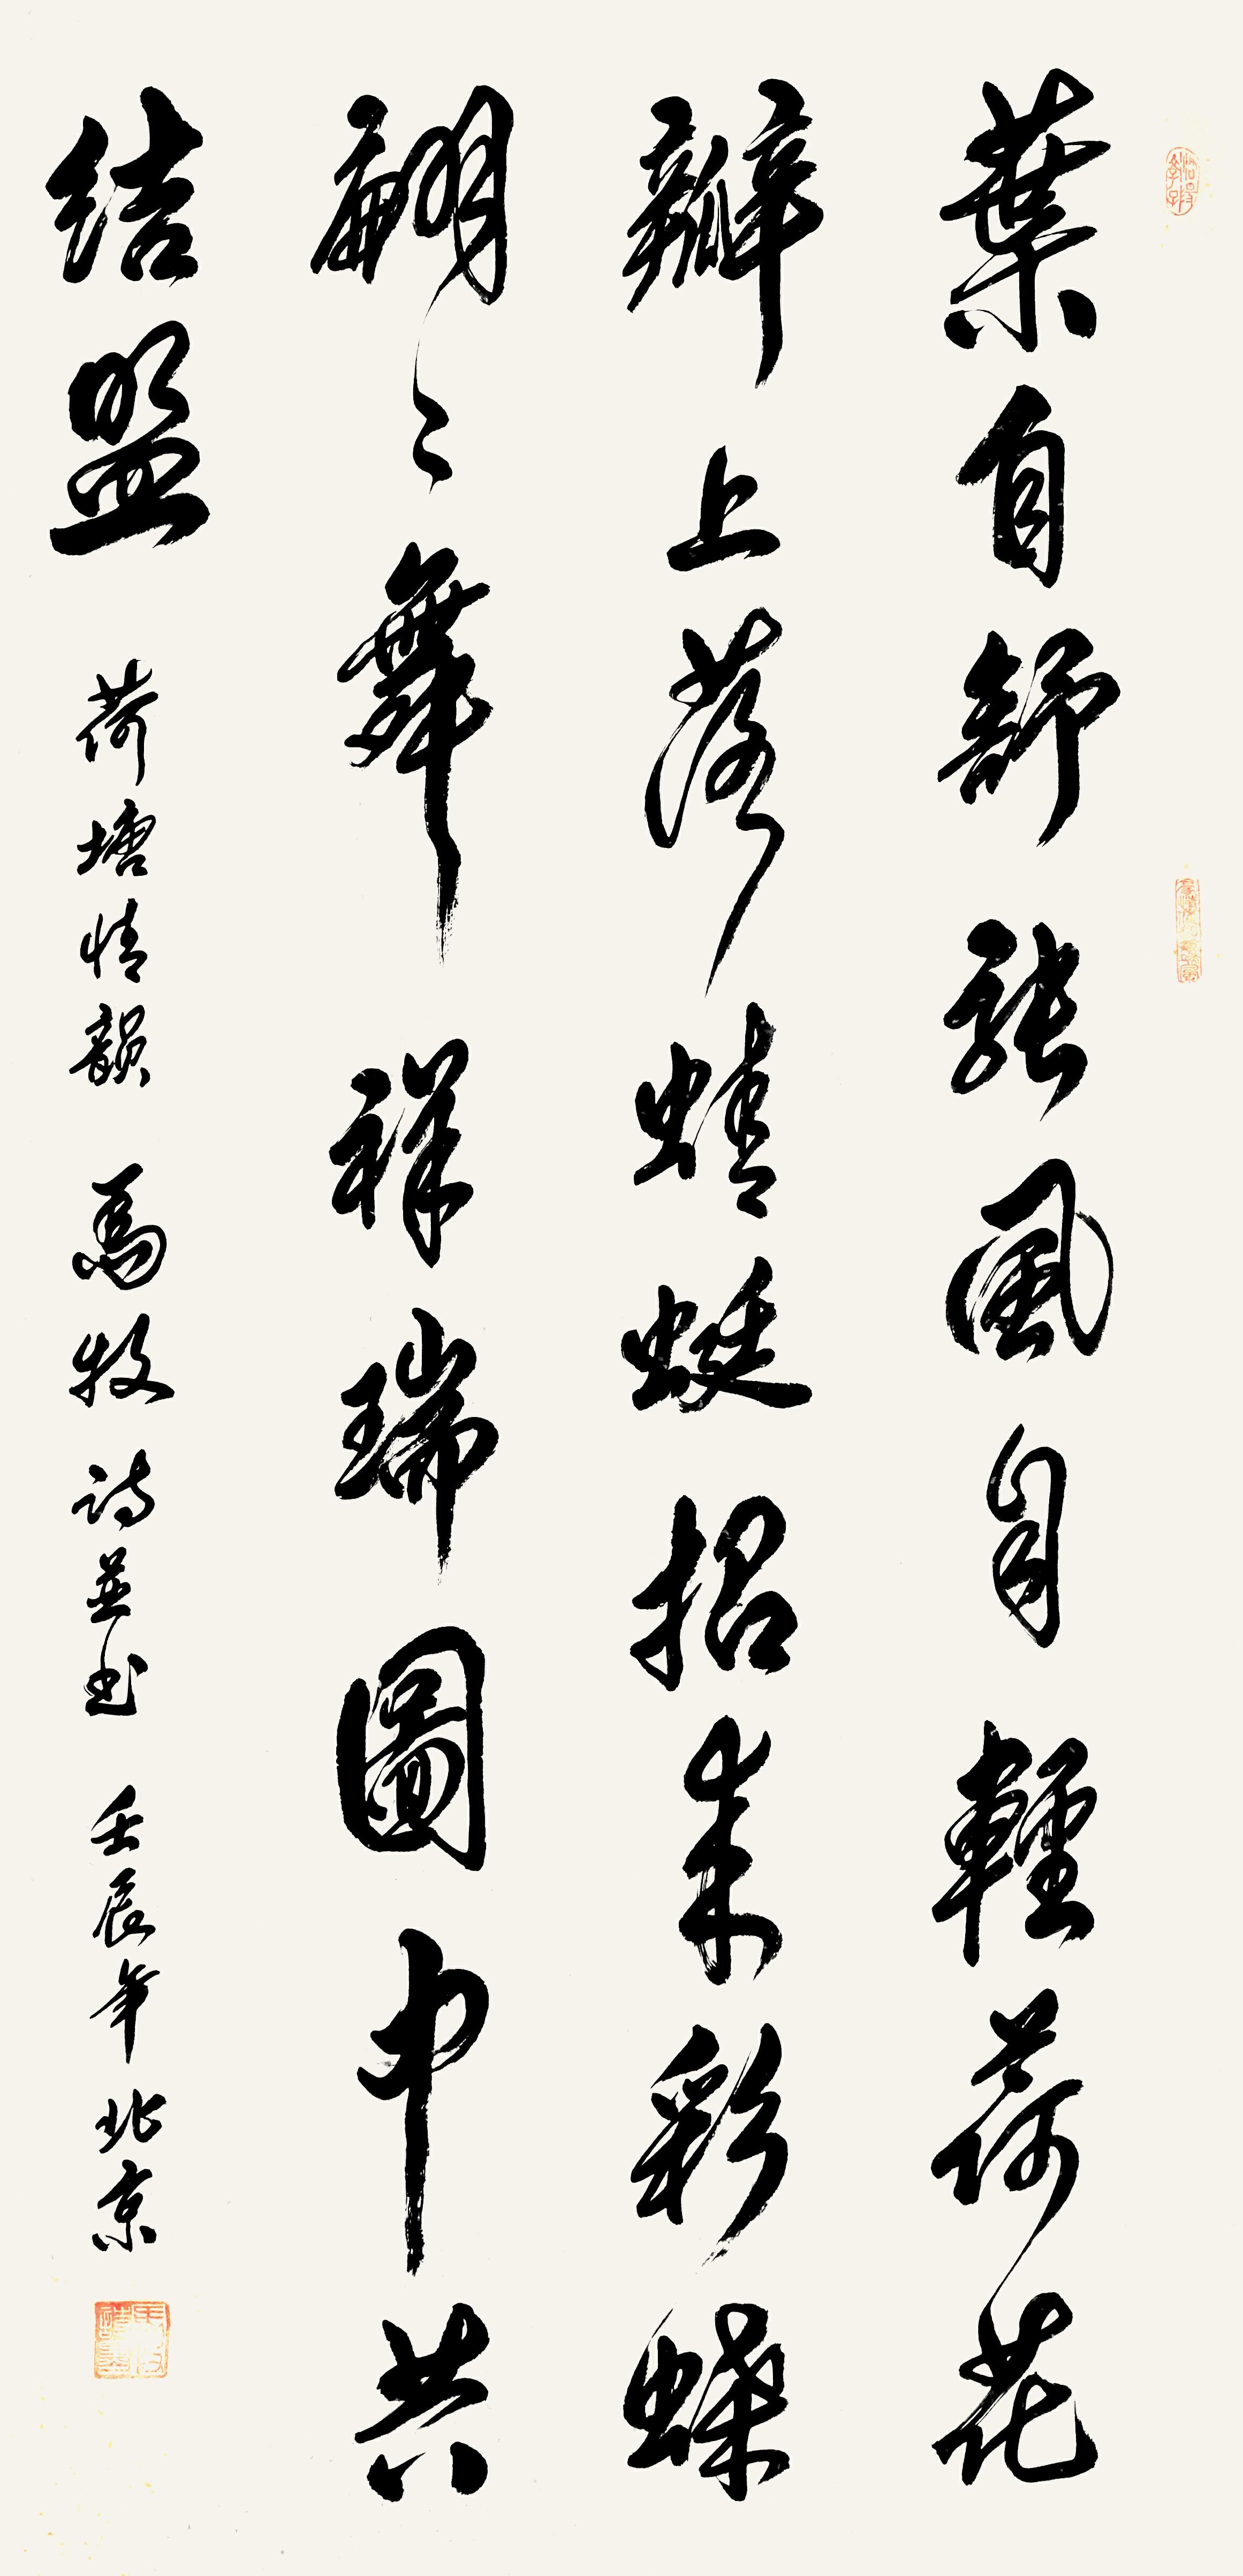 葉自舒張風自輕荷花
瓣上落蜻蜓招来彩蝶
翩々舞祥瑞圖中共
結盟
荷塘情韻 馬牧詩並书 壬辰年北京